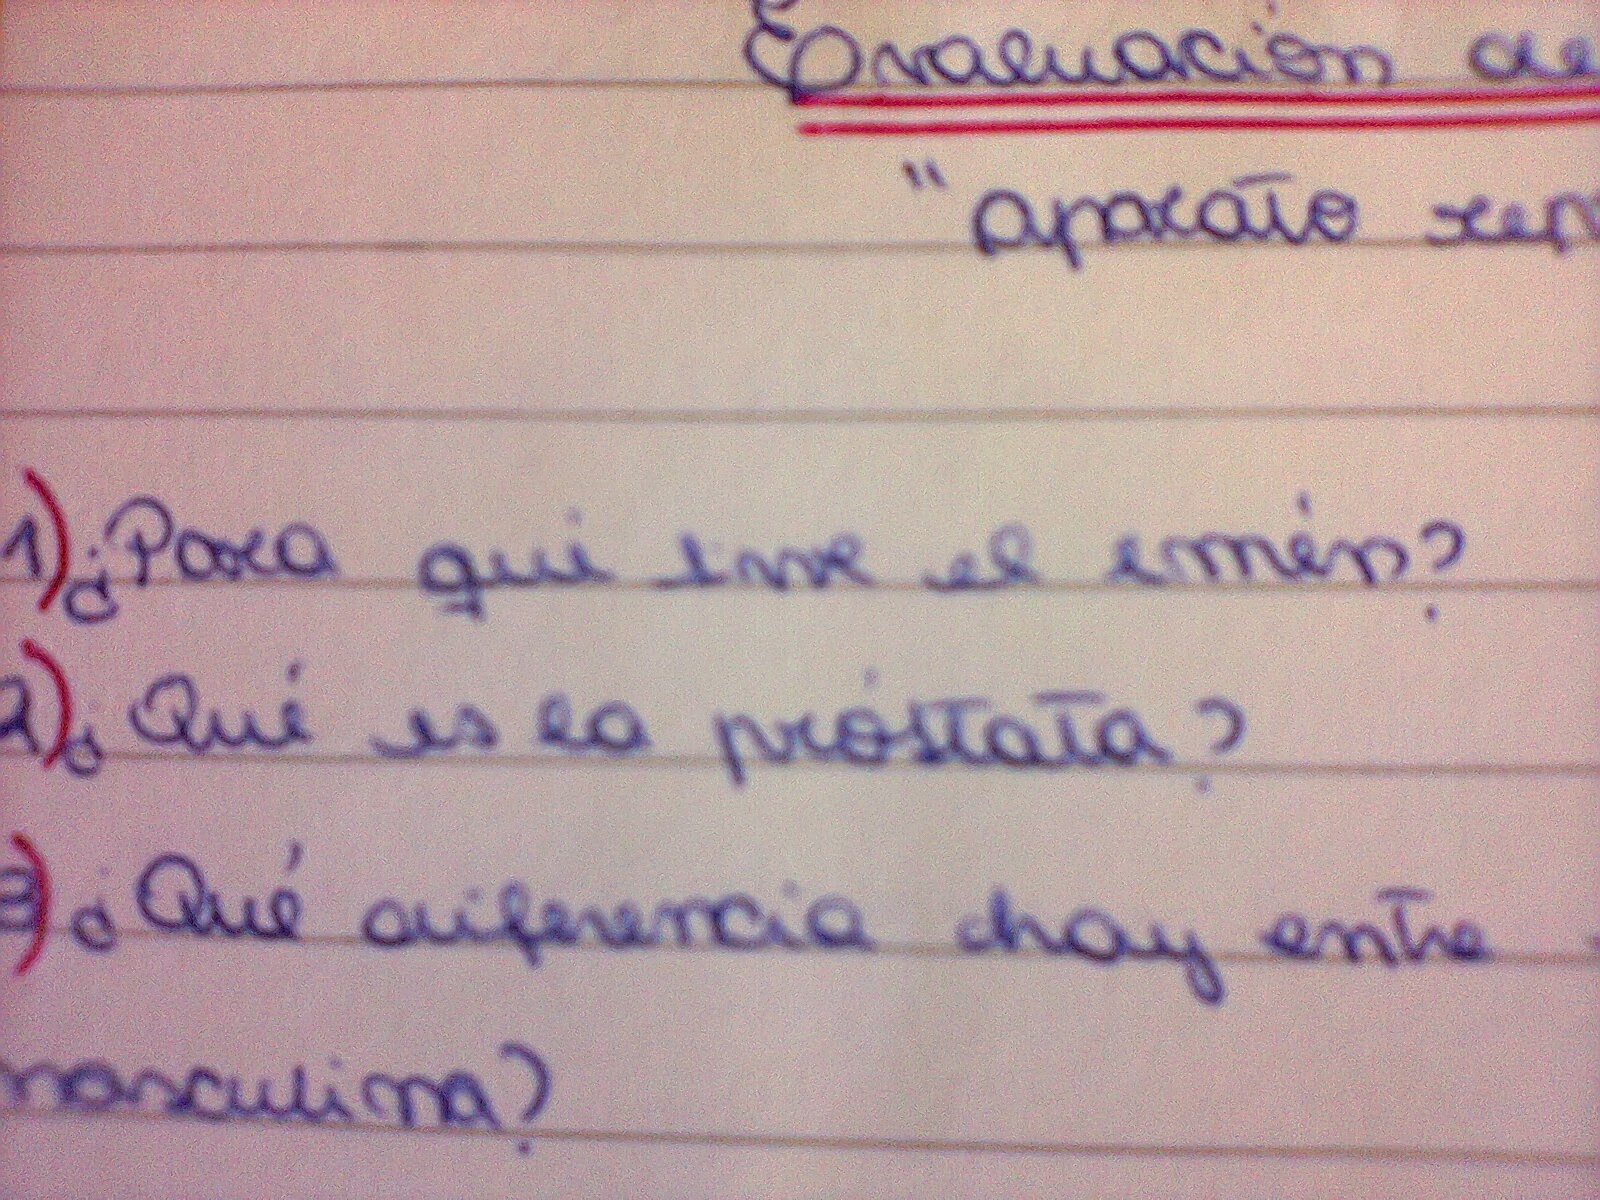 Evaluación de
"aparato rep
1) ¿Para qué sirve el semén?
2) ¿Qué es la próstata?
3) ¿Qué diferencia hay entre
masculina?